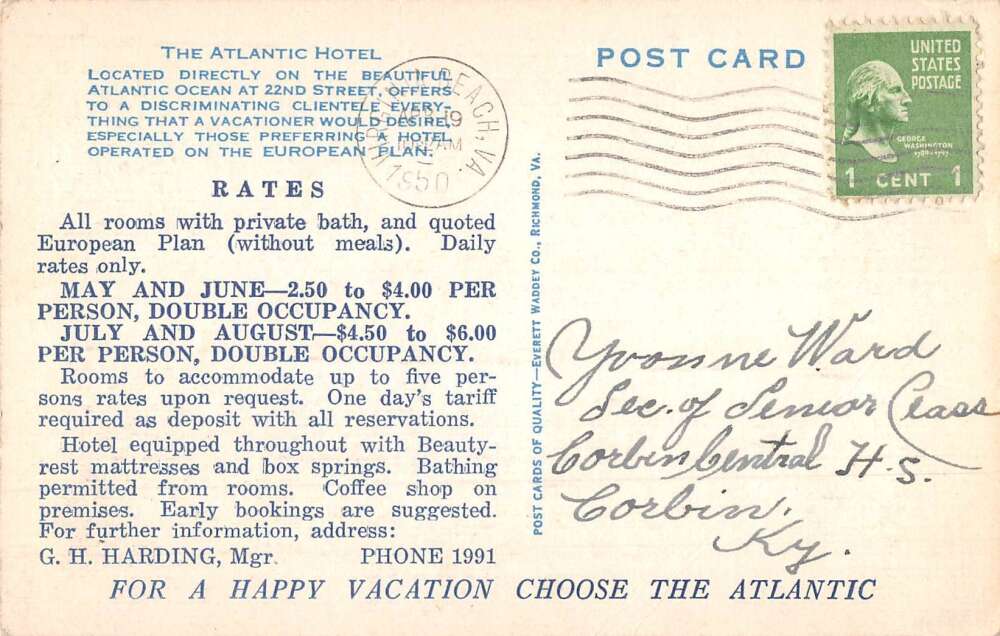 THE ATLANTIC HOTEL
LOCATED DIRECTLY ON THE BEAUTIFUL
ATLANTIC OCEAN AT 22ND STREET, OFFERS
TO A DISCRIMINATING CLIENTELE EVERY-
THING THAT A VACATIONER WOULD DESIRE,
ESPECIALLY THOSE PREFERRING A HOTEL
OPERATED ON THE EUROPEAN PLAN.
RATES
All rooms with private bath, and quoted
European Plan (without meals). Daily
rates only.
MAY AND JUNE—2.50 to $4.00 PER
PERSON, DOUBLE OCCUPANCY.
JULY AND AUGUST—$4.50 to $6.00
PER PERSON, DOUBLE OCCUPANCY.
Rooms to accommodate up to five per-
sons rates upon request. One day's tariff
required as deposit with all reservations.
Hotel equipped throughout with Beauty-
rest mattresses and box springs. Bathing
permitted from rooms. Coffee shop on
premises. Early bookings are suggested.
For further information, address:
G. H. HARDING, Mgr. PHONE 1991
FOR A HAPPY VACATION CHOOSE THE ATLANTIC
VIRGINIA BEACH, VA.
APR 19
AM
1950
POST CARDS OF QUALITY—EVERETT WADDEY CO., RICHMOND, VA.
POST CARD
UNITED
STATES
POSTAGE
GEORGE
WASHINGTON
1789-1797
1 CENT 1
Yvonne Ward
Sec. of Senior Class
Corbin Central H.S.
Corbin,
Ky.